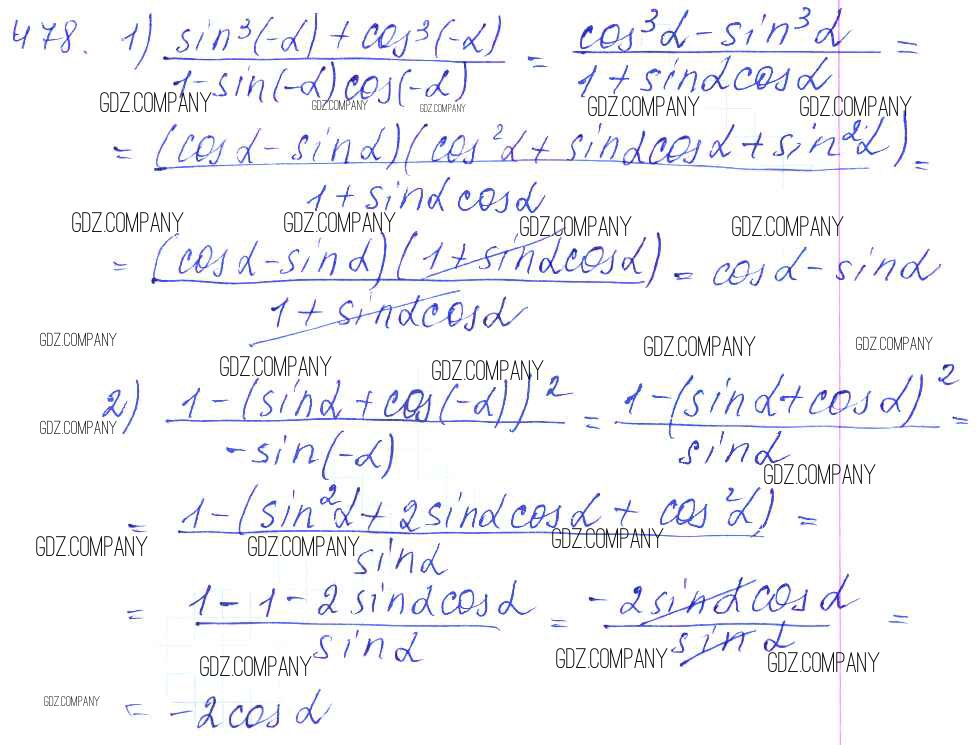 478. 1) sin³(-α) + cos³(-α) / 1 - sin(-α)cos(-α) = cos³α - sin³α / 1 + sinαcosα =
GDZ.COMPANY GDZ.COMPANY GDZ.COMPANY GDZ.COMPANY GDZ.COMPANY
= (cosα - sinα)(cos²α + sinαcosα + sin²α) / 1 + sinαcosα =
GDZ.COMPANY GDZ.COMPANY GDZ.COMPANY GDZ.COMPANY
= (cosα - sinα)(1 + sinαcosα) / 1 + sinαcosα = cosα - sinα
GDZ.COMPANY GDZ.COMPANY GDZ.COMPANY GDZ.COMPANY GDZ.COMPANY
2) 1 - (sinα + cos(-α))² / -sin(-α) = 1 - (sinα + cosα)² / sinα =
GDZ.COMPANY GDZ.COMPANY
= 1 - (sin²α + 2sinαcosα + cos²α) / sinα =
GDZ.COMPANY GDZ.COMPANY GDZ.COMPANY
= 1 - 1 - 2sinαcosα / sinα = -2sinαcosα / sinα =
GDZ.COMPANY GDZ.COMPANY GDZ.COMPANY
GDZ.COMPANY
= -2cosα